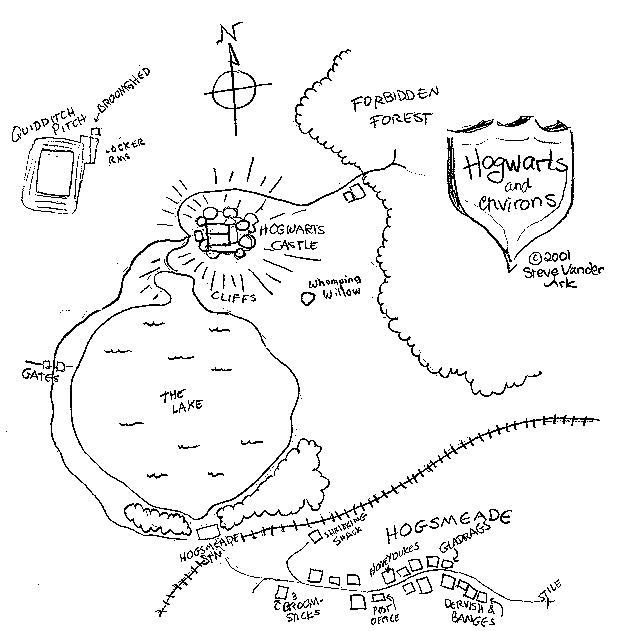 N
BROOMSHED
QUIDDITCH
PITCH
LOCKER
RMS
FORBIDDEN
FOREST
Hogwarts
and
environs
©2001
Steve Vander
Ark
HOGWARTS
CASTLE
CLIFFS
Whomping
Willow
GATES
THE
LAKE
HOGSMEADE
STN
SHRIEKING
SHACK
HOGSMEADE
HONEYDUKES
GLADRAGS
3
BROOM-
STICKS
POST
OFFICE
DERVISH &
BANGES
STILE